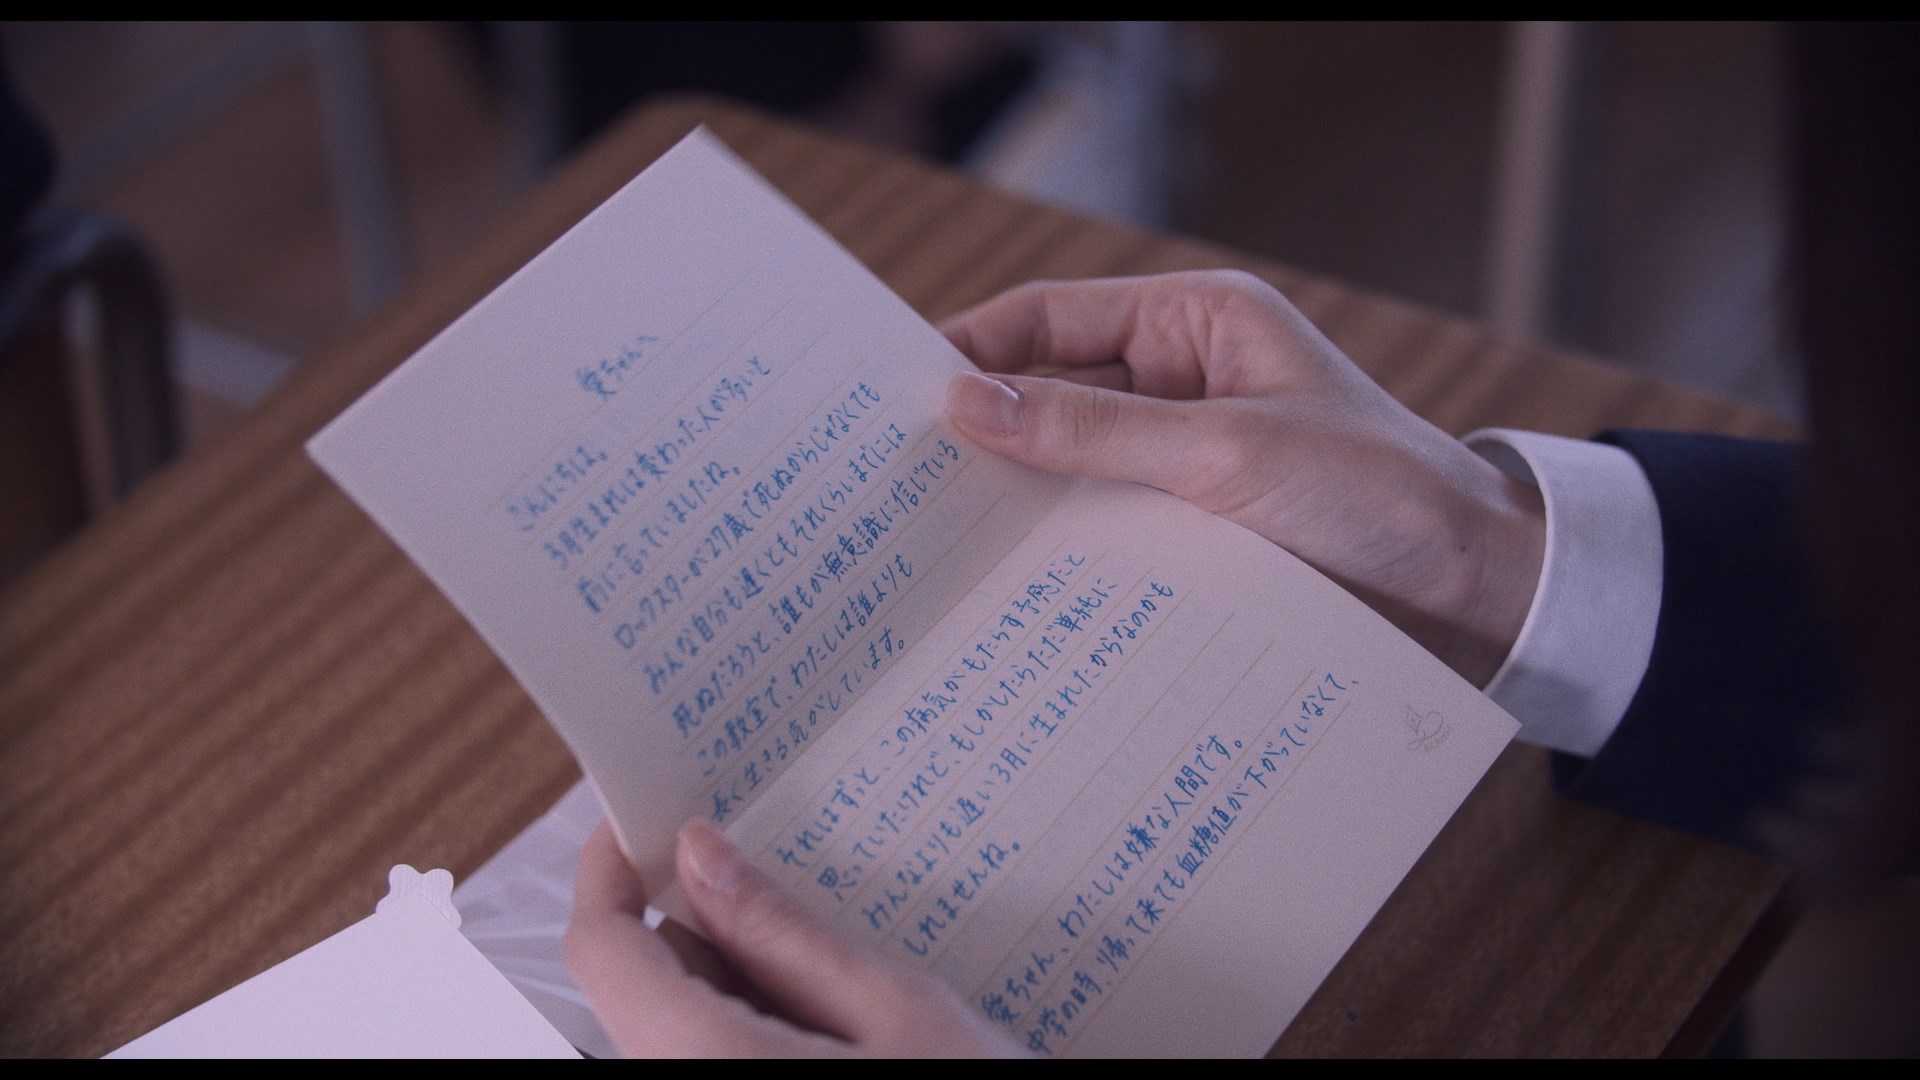 愛ちゃんへ
こんにちは。
3月生まれは変わった人が多いと
前に言っていましたね。
ロックスターが27歳で死ぬからじゃなくても
みんな自分も遅くともそれくらいまでには
死ぬだろうと、誰もが無意識に信じている
この教室で、わたしは誰よりも
長く生きる気がしています。
それはずっと、この病気がもたらす予感だと
思っていたけれど、もしかしたらただ単純に
みんなよりも遅い3月に生まれたからなのかも
しれませんね。
愛ちゃん、わたしは嫌な人間です。
中学の時、帰って来ても血糖値が下がっていなくて、